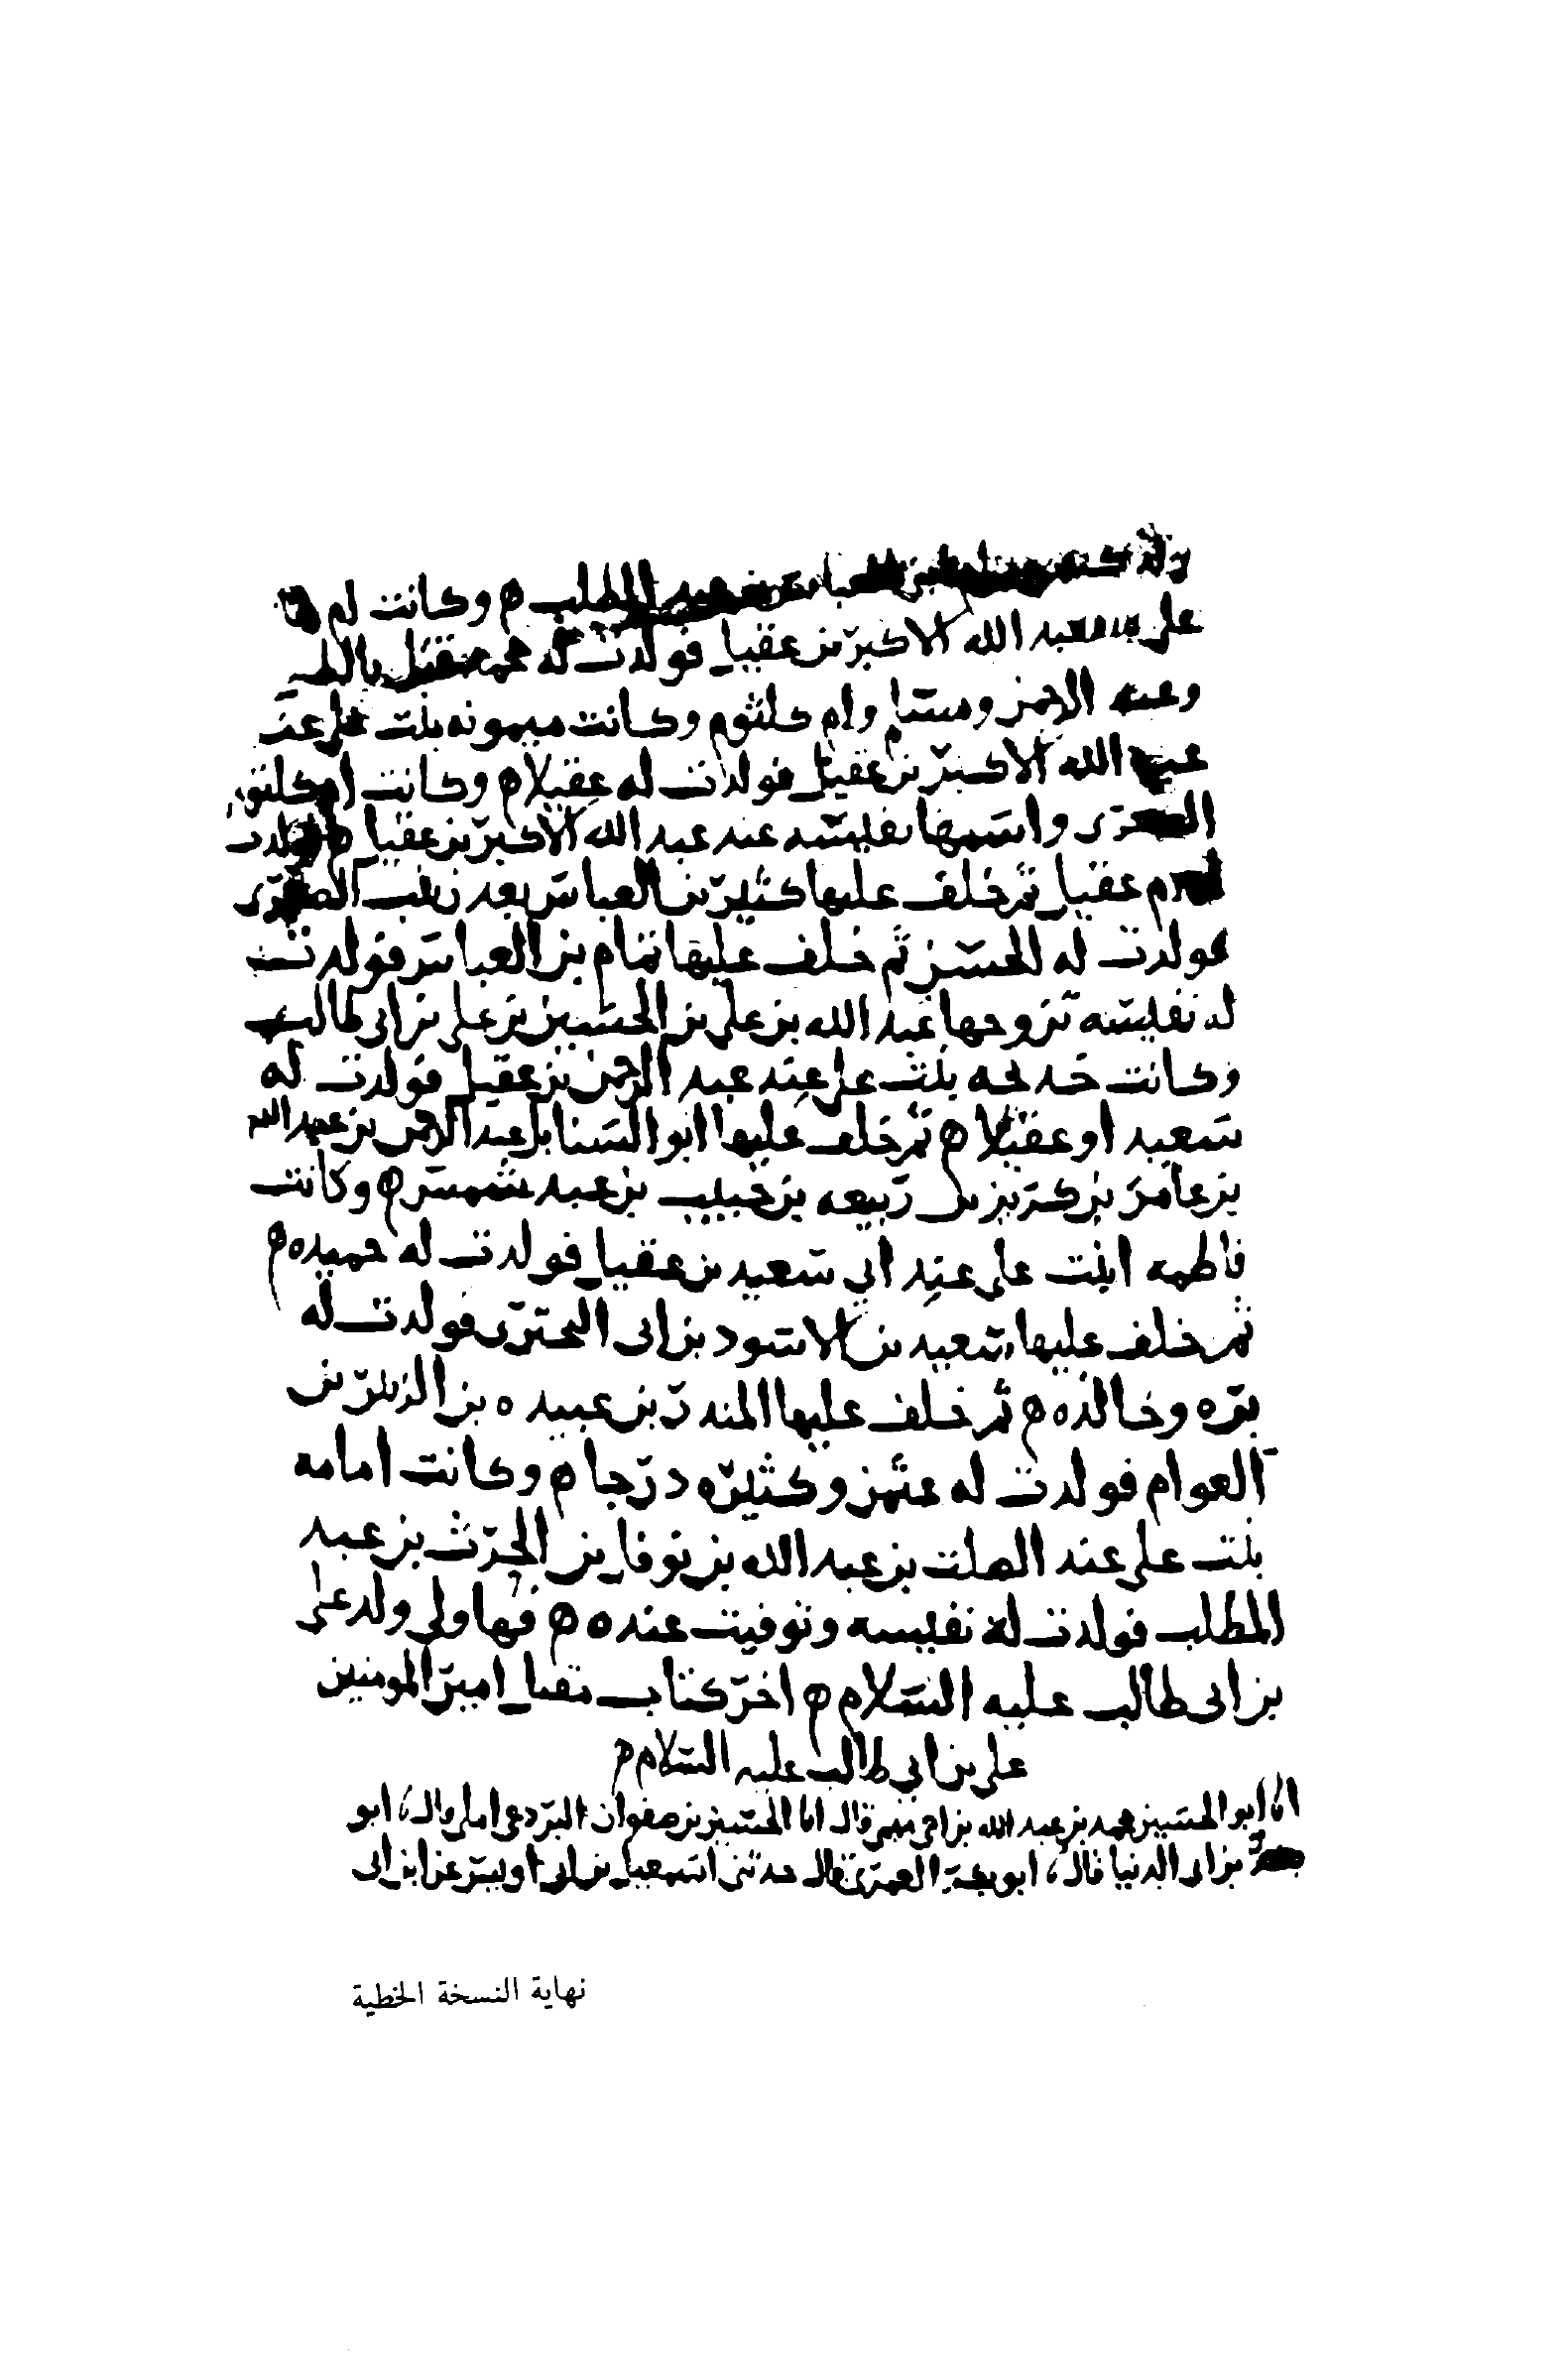 المطلب ه وكانت ام
على عند عبد الله الاكبر بن عقيل فولدت له محمد قتل بالطف
وعبد الرحمن ومسلم وام كلثوم وكانت ميمونه بنت على عند
عبد الله الاكبر بن عقيل فولدت له عقيلا ه وكانت ام كلثوم
الصغرى واسمها نفيسه عند عبد الله الاكبر بن عقيل ه فولدت
ام عقيل ثم خلف عليها كثير بن العباس بعد زينب الصغرى
فولدت له الحسن ثم خلف عليها تمام بن العباس فولدت
له نفيسه تزوجها عبد الله بن على بن الحسين بن على بن ابى طالب
وكانت خديجه بنت على عند عبد الرحمن بن عقيل فولدت له
سعيد او عقيلا ه ثم خلف عليها ابو السنابل عبد الرحمن بن عبد الله
بن عامر بن كريز بن ربيعه بن حبيب بن عبد شمس ه وكانت
فاطمه ابنت على عند ابي سعيد بن عقيل فولدت له حميده ه
ثم خلف عليها سعيد بن الاسود بن ابى البخترى فولدت له
بره وخالده ه ثم خلف عليها المنذر بن عبيده بن الزبير بن
العوام فولدت له عثمن وكثيره درجا ه وكانت امامه
بنت على عند الصلت بن عبد الله بن نوفل بن الحرث بن عبد
المطلب فولدت له نفيسه وتوفيت عنده ه فهاولى ولد على
بن ابى طالب عليه السلام ه اخر كتاب مقتل امير المومنين
على بن ابي طالب عليه السلام ه
انا ابو الحسين محمد بن عبد الله بن اخى ميمى قال انا الحسين بن صفوان البردعى املى قال ابو
بكر بن ابى الدنيا قال ابو العمرى قال حدثنى اسمعيل بن ابي اويس عن ابن ابى
نهاية النسخة الخطية